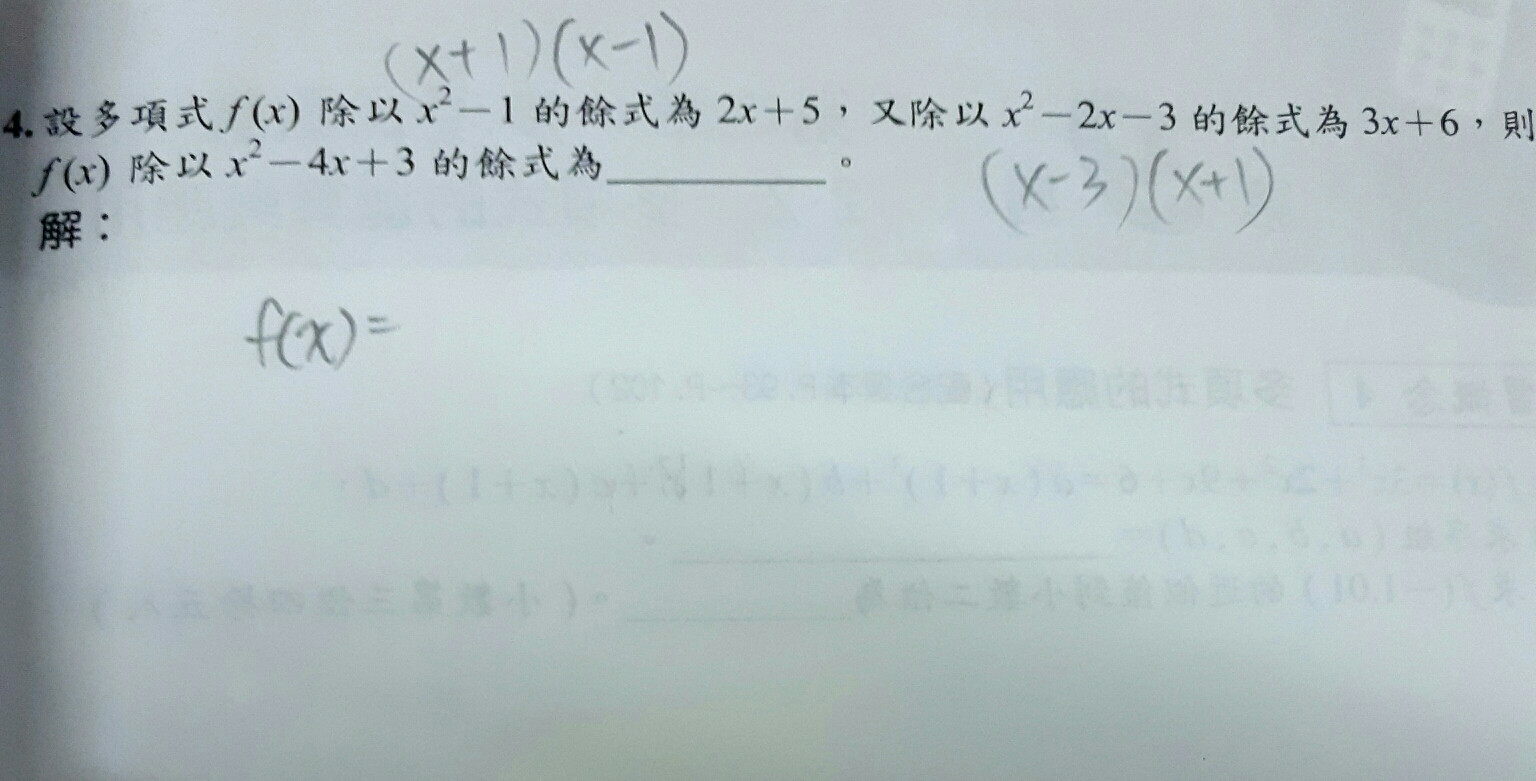 (x+1)(x-1)
4. 設多項式 f(x) 除以 x²−1 的餘式為 2x+5，又除以 x²−2x−3 的餘式為 3x+6，則
f(x) 除以 x²−4x+3 的餘式為__________。
(x-3)(x+1)
解：
f(x)=